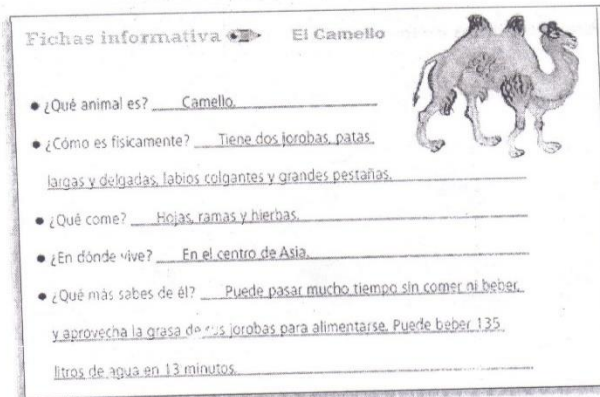 Fichas informativa El Camello
¿Qué animal es? Camello.
¿Cómo es físicamente? Tiene dos jorobas, patas
largas y delgadas, labios colgantes y grandes pestañas.
¿Qué come? Hojas, ramas y hierbas.
¿En dónde vive? En el centro de Asia.
¿Qué más sabes de él? Puede pasar mucho tiempo sin comer ni beber,
y aprovecha la grasa de sus jorobas para alimentarse. Puede beber 135
litros de agua en 13 minutos.